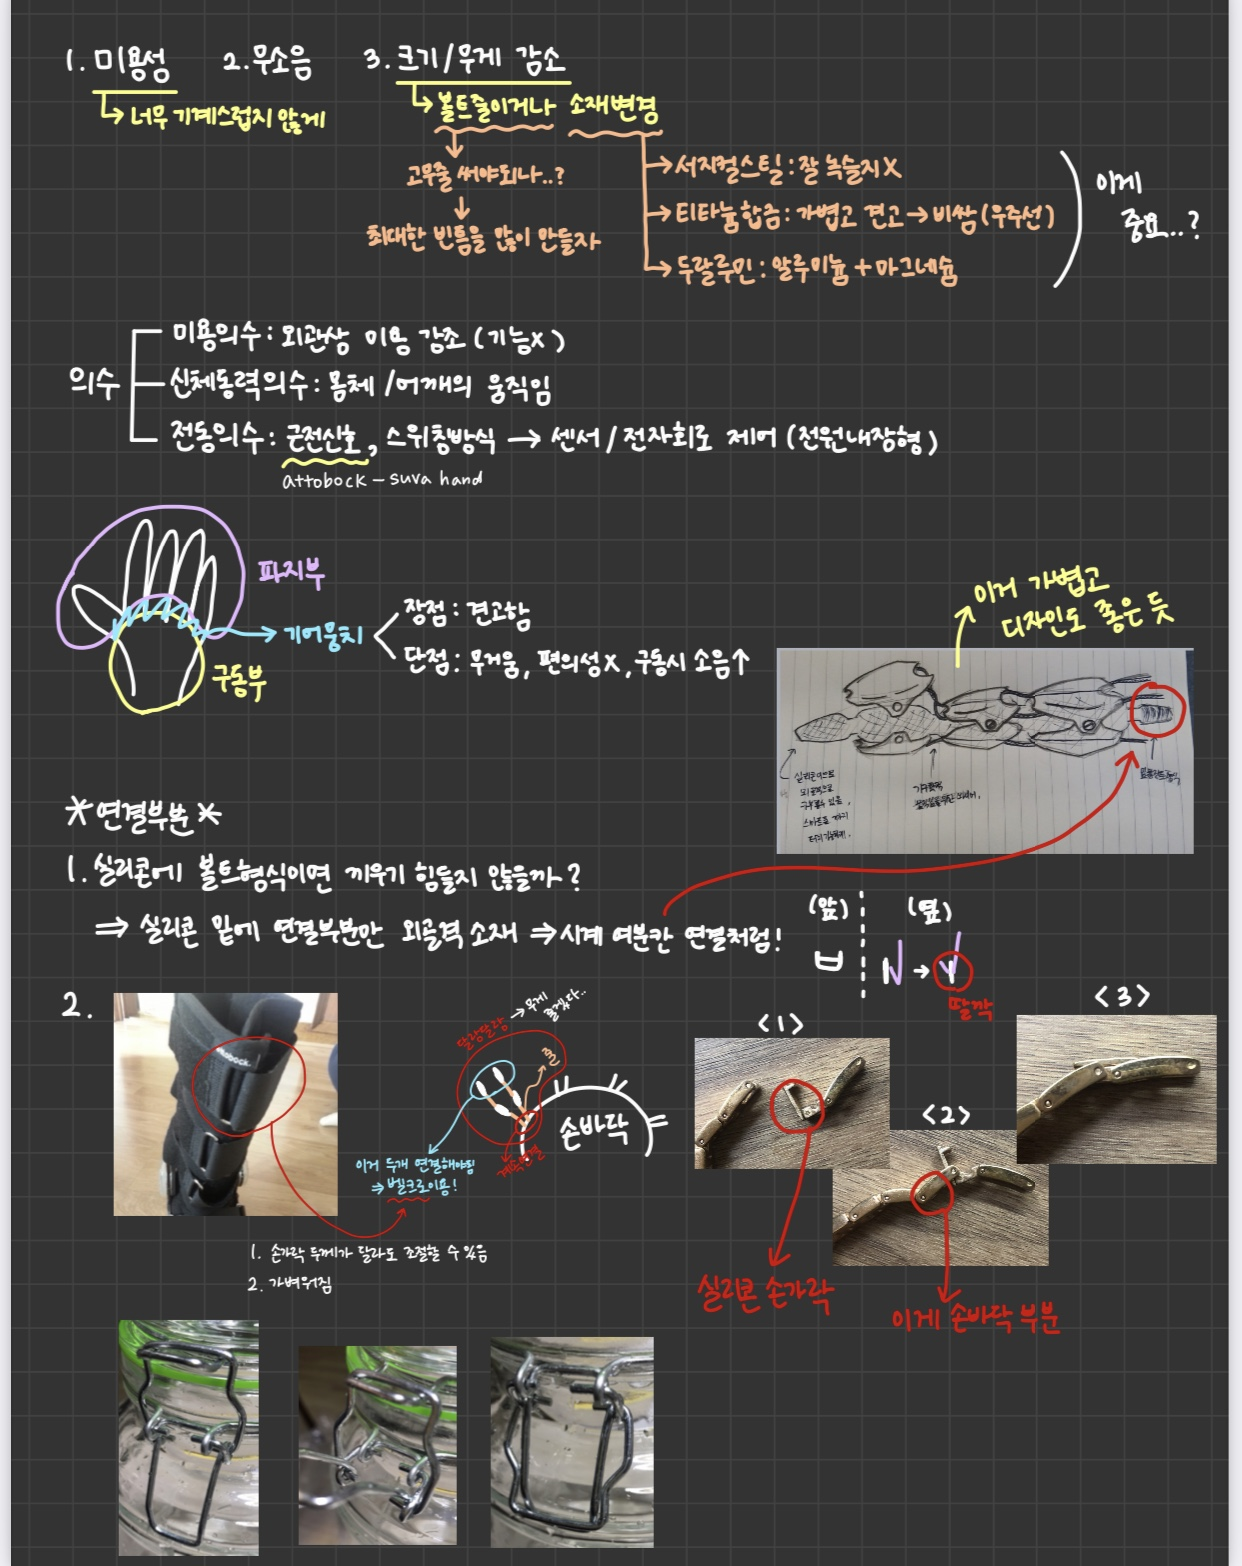 1. 미용성 2. 무소음 3. 크기/무게 감소
↳ 너무 기계스럽지 않게
↳ 볼트줄이거나 소재변경
고무줄 써야되나..?
최대한 빈틈을 많이 만들자
→ 서지컬스틸 : 잘 녹슬지 X
→ 티타늄합금 : 가볍고 견고 → 비쌈 (우주선)
→ 두랄루민 : 알루미늄 + 마그네슘
이게
중요..?
의수
미용의수 : 외관상 미용 강조 (기능X)
신체동력의수 : 몸체 / 어깨의 움직임
전동의수 : 근전신호, 스위칭방식 → 센서 / 전자회로 제어 (전원내장형)
attobock - suva hand
파지부
기어뭉치
구동부
장점 : 견고함
단점 : 무거움, 편의성X, 구동시 소음↑
이거 가볍고
디자인도 좋은 듯
*연결부분*
1. 실리콘에 볼트형식이면 끼우기 힘들지 않을까?
⇒ 실리콘 밑에 연결부분만 외골격 소재 ⇒ 시계 여분칸 연결처럼!
(앞) (옆)
딸깍
2.
달랑달랑 → 무게
줄
손바닥
계속연결
이거 두개 연결해야됨
⇒ 벨크로이용!
1. 손가락 두께가 달라도 조절할 수 있음
2. 가벼워짐
<1>
<2>
<3>
실리콘 손가락
이게 손바닥 부분